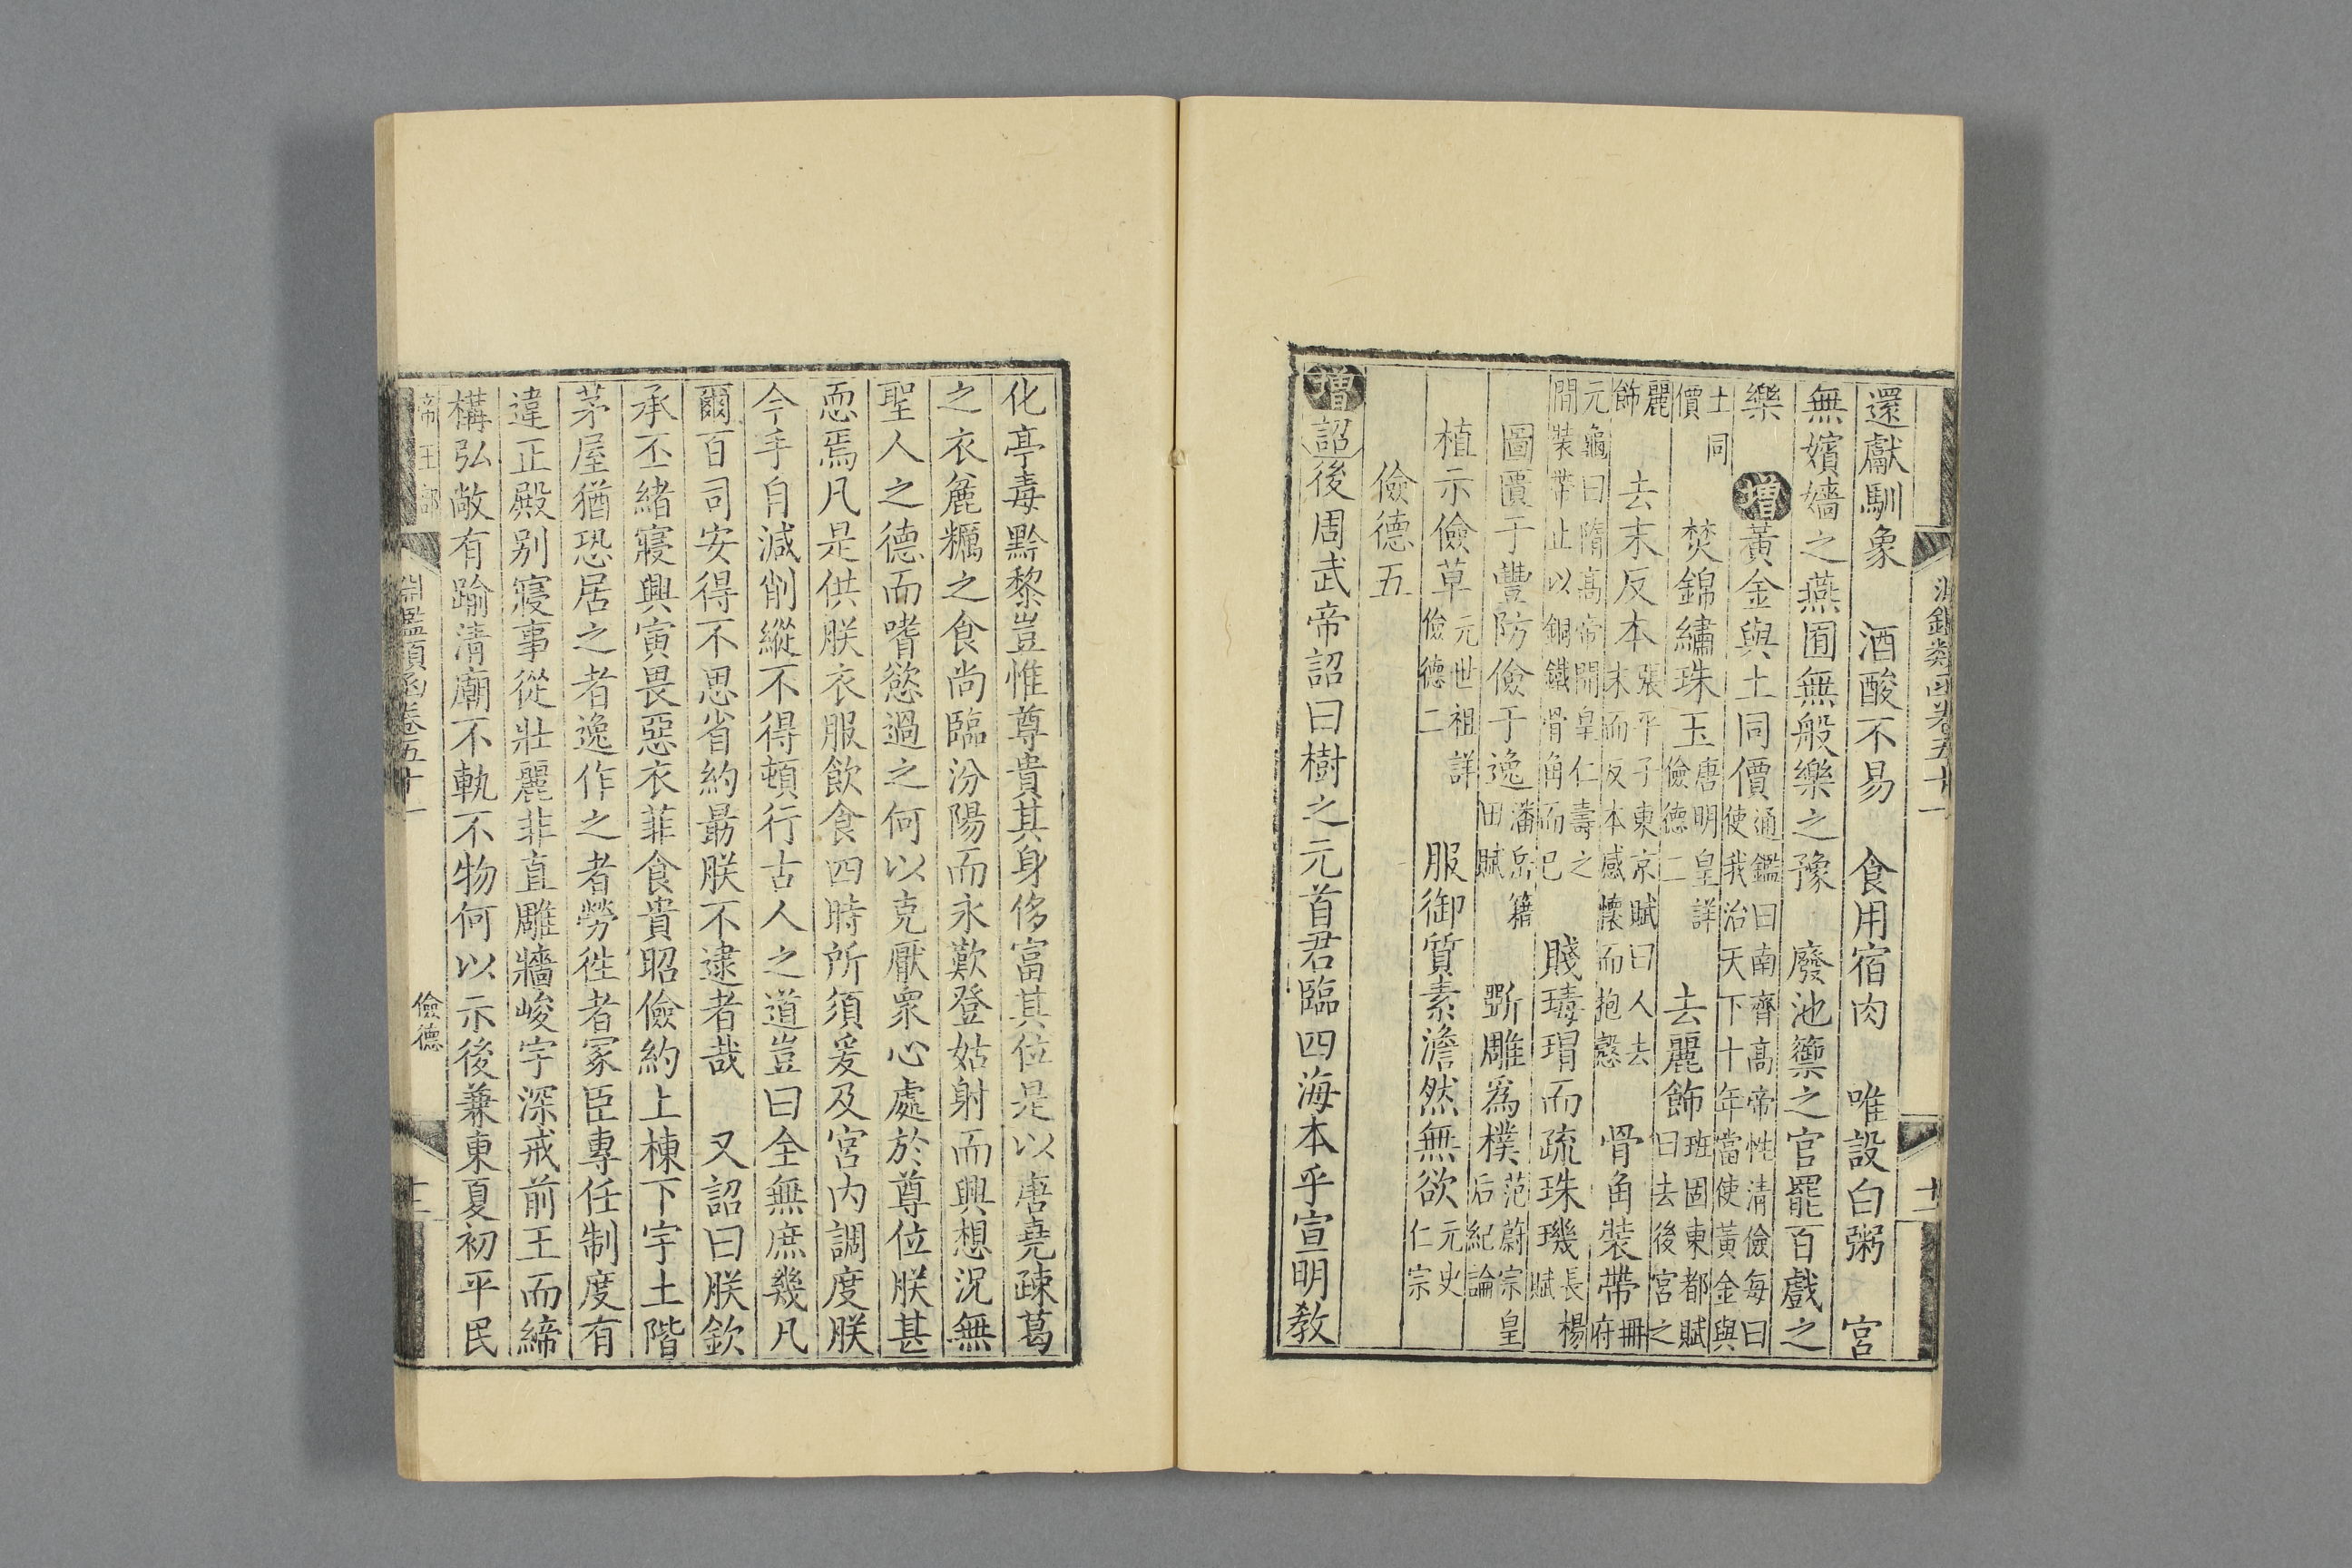 淵鑑類函卷五十一
還獻馴象 酒酸不易 食用宿肉 唯設白粥 宮
無嬪嬙之燕囿無般樂之豫 廢池籞之官罷百戲之
樂 增黃金與土同價通鑑曰南齊高帝性清儉每曰使我治天下十年當使黃金與
土同價 焚錦繡珠玉唐明皇詳儉德二 去麗飾班固東都賦曰去後宮之
麗飾 去末反本張平子東京賦曰人去末而反本感懷而抱慤 骨角裝帶冊府
元龜曰隋高帝開皇仁壽之間裝帶止以銅鐵骨角而已 賤瑇瑁而疏珠璣長楊賦
圖匱于豐防儉于逸潘岳籍田賦 斲雕爲樸范蔚宗皇后紀論
植示儉草元世祖詳儉德二 服御質素澹然無欲元史仁宗
儉德五
增詔後周武帝詔曰樹之元首君臨四海本乎宣明教
化亭毒黔黎豈惟尊貴其身侈富其位是以唐堯疎葛
之衣麄糲之食尚臨汾陽而永歎登姑射而興想況無
聖人之德而嗜慾過之何以克厭衆心處於尊位朕甚
恧焉凡是供朕衣服飲食四時所須爰及宮内調度朕
今手自減削縱不得頓行古人之道豈曰全無庶幾凡
爾百司安得不思省約勗朕不逮者哉 又詔曰朕欽
承丕緒寢興寅畏惡衣菲食貴昭儉約上棟下宇土階
茅屋猶恐居之者逸作之者勞徃者冢臣專任制度有
違正殿别寢事從壯麗非直雕牆峻宇深戒前王而締
構弘敞有踰清廟不軌不物何以示後兼東夏初平民
帝王部 淵鑑類函卷五十一 儉德